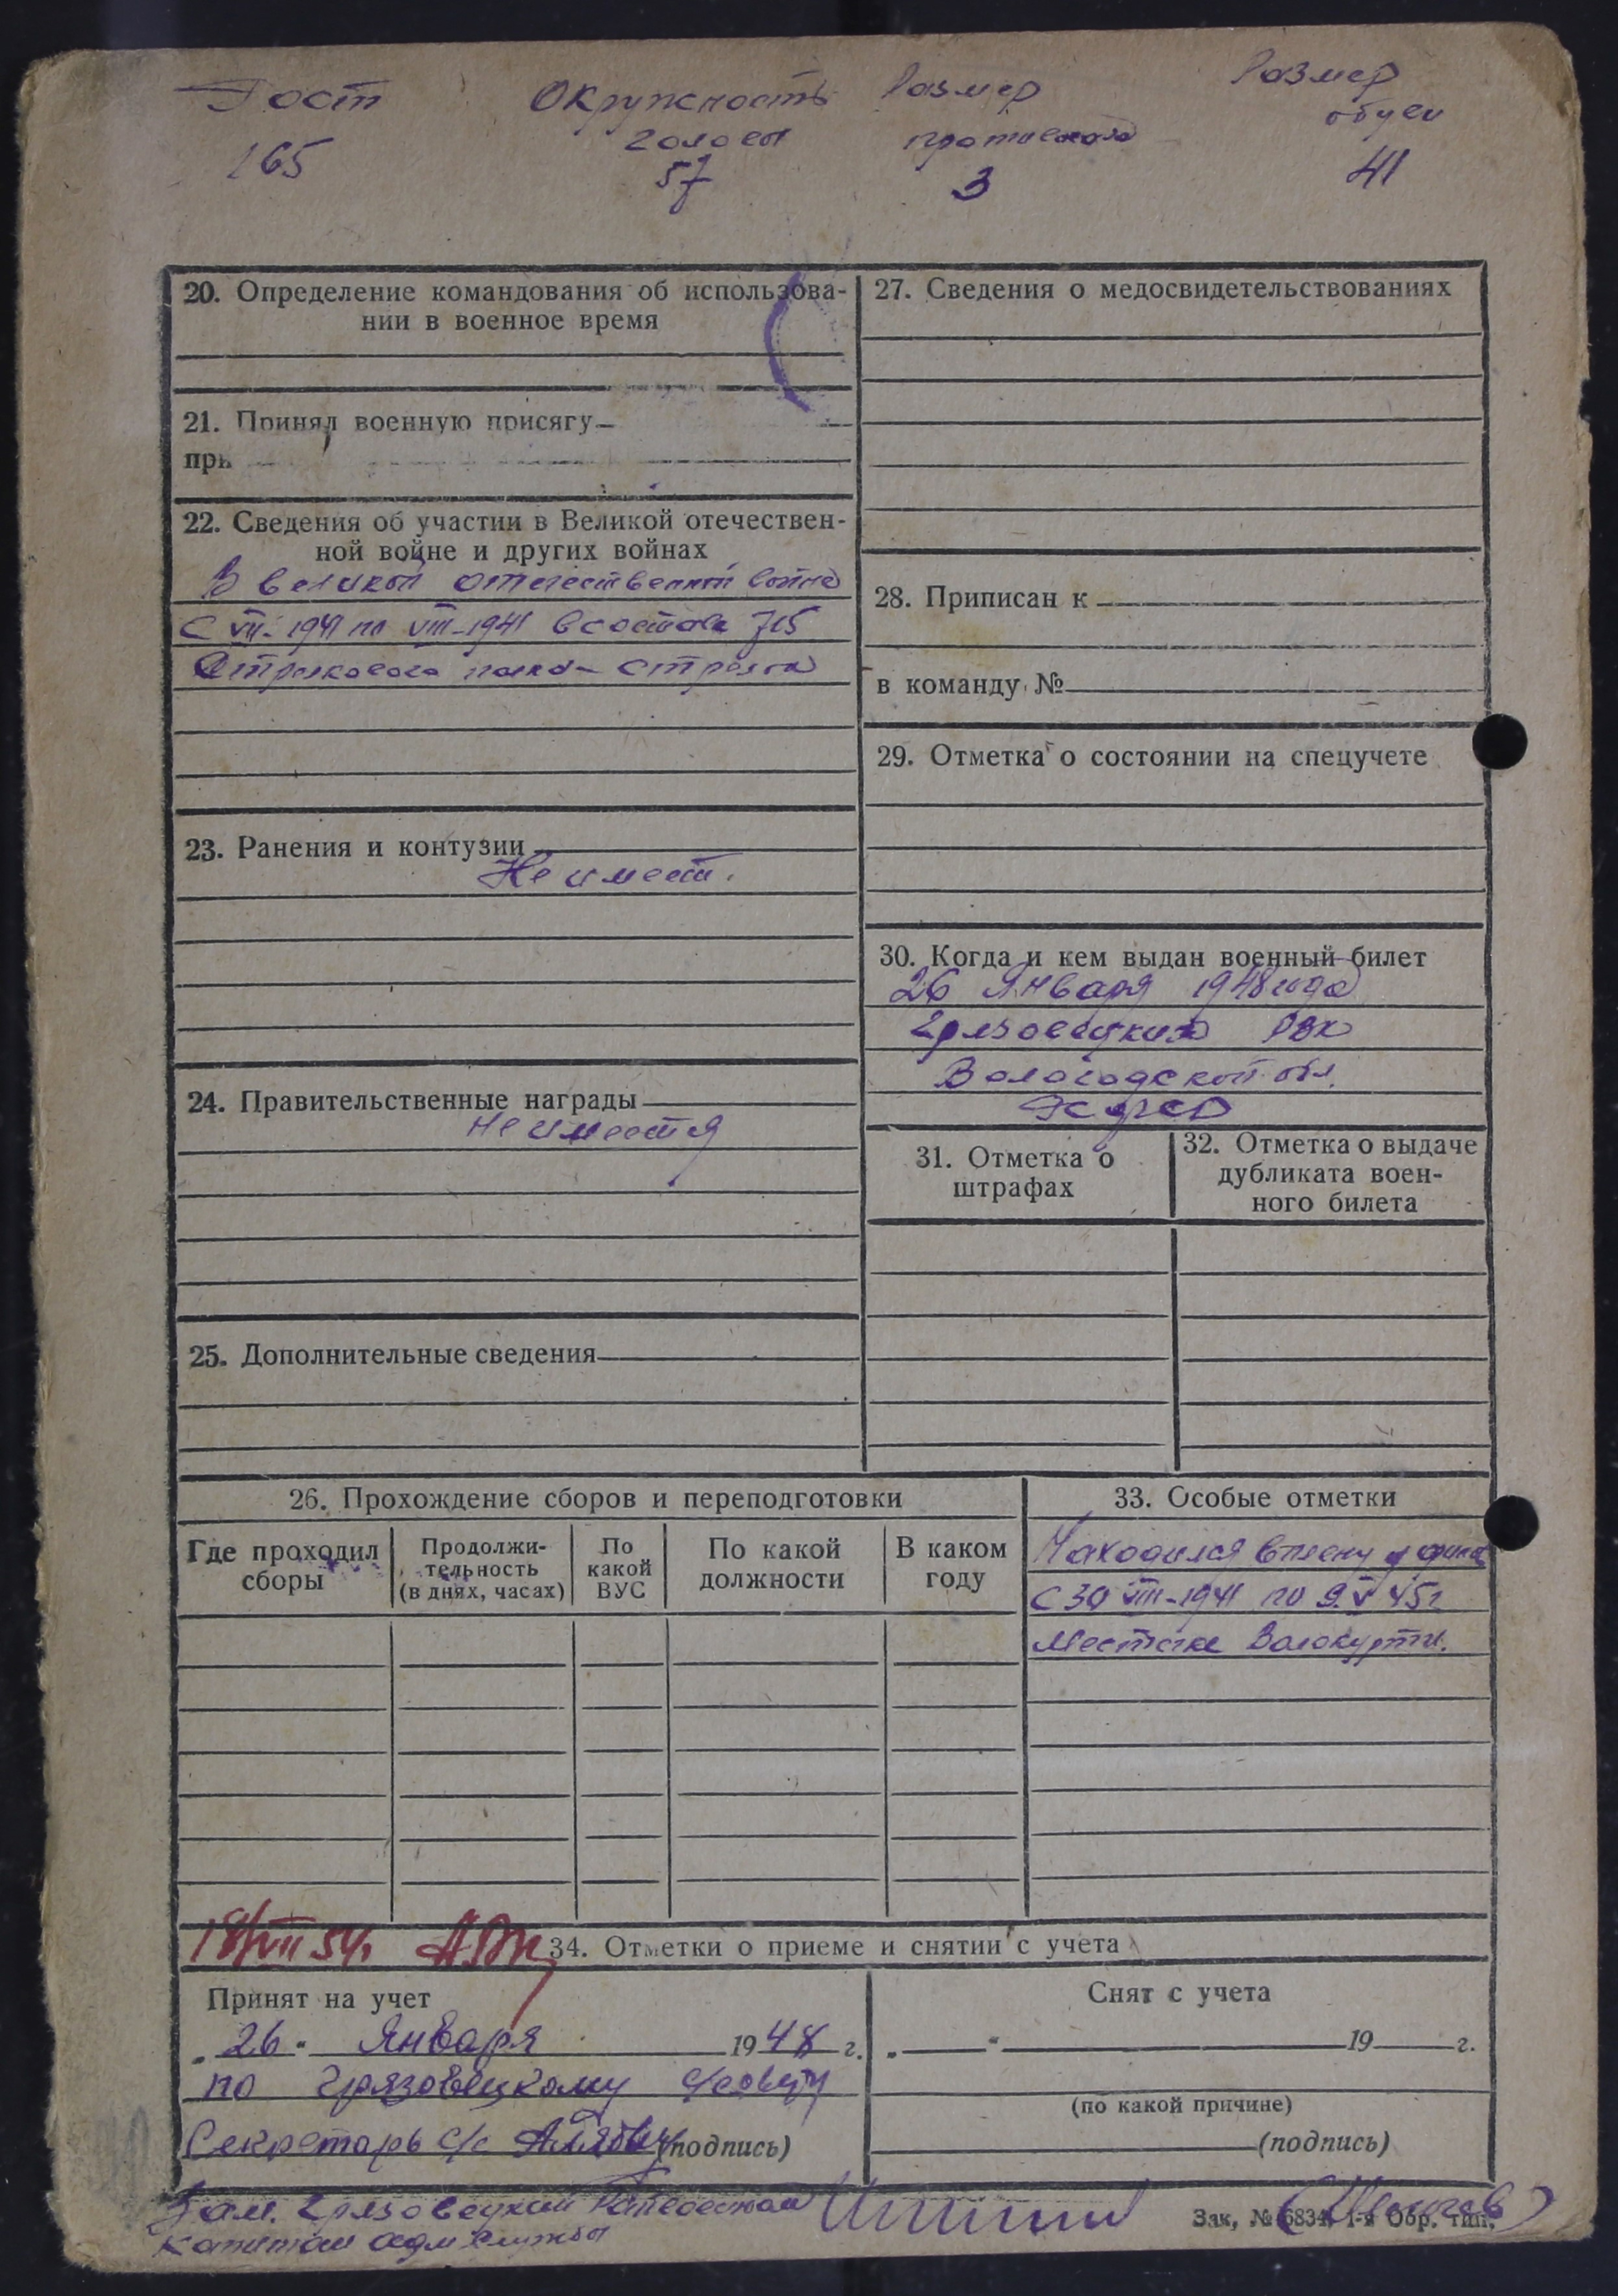 Рост
165
Окружность
головы
57
Размер
противогаза
3
Размер
обуви
41
20. Определение командования об использова-
нии в военное время
21. Принял военную присягу
при
22. Сведения об участии в Великой отечествен-
ной войне и других войнах
В великой отечественной войне
с VII-1941 по VIII-1941 в составе 715
стрелкового полка - стрелок
23. Ранения и контузии
Не имеет.
24. Правительственные награды
Не имеется
25. Дополнительные сведения
27. Сведения о медосвидетельствованиях
28. Приписан к
в команду №
29. Отметка о состоянии на спецучете
30. Когда и кем выдан военный билет
26 января 1948 года
Грязовецким РВК
Вологодской обл.
31. Отметка о
штрафах
32. Отметка о выдаче
дубликата воен-
ного билета
26. Прохождение сборов и переподготовки
Где проходил
сборы
Продолжи-
тельность
(в днях, часах)
По
какой
ВУС
По какой
должности
В каком
году
33. Особые отметки
Находился в плену у
с 30 VIII-1941 по 9.V 45г
Местечке
18/VII 54г.
34. Отметки о приеме и снятии с учета
Принят на учет
„ 26 " Января 1948 г.
по Грязовецкому с/совету
Секретарь с/с (подпись)
Снят с учета
„ " 19 г.
(по какой причине)
(подпись)
Зам. Грязовецкий
капитан адм службы
Зак, № 6834. 1-я Обр. тип.